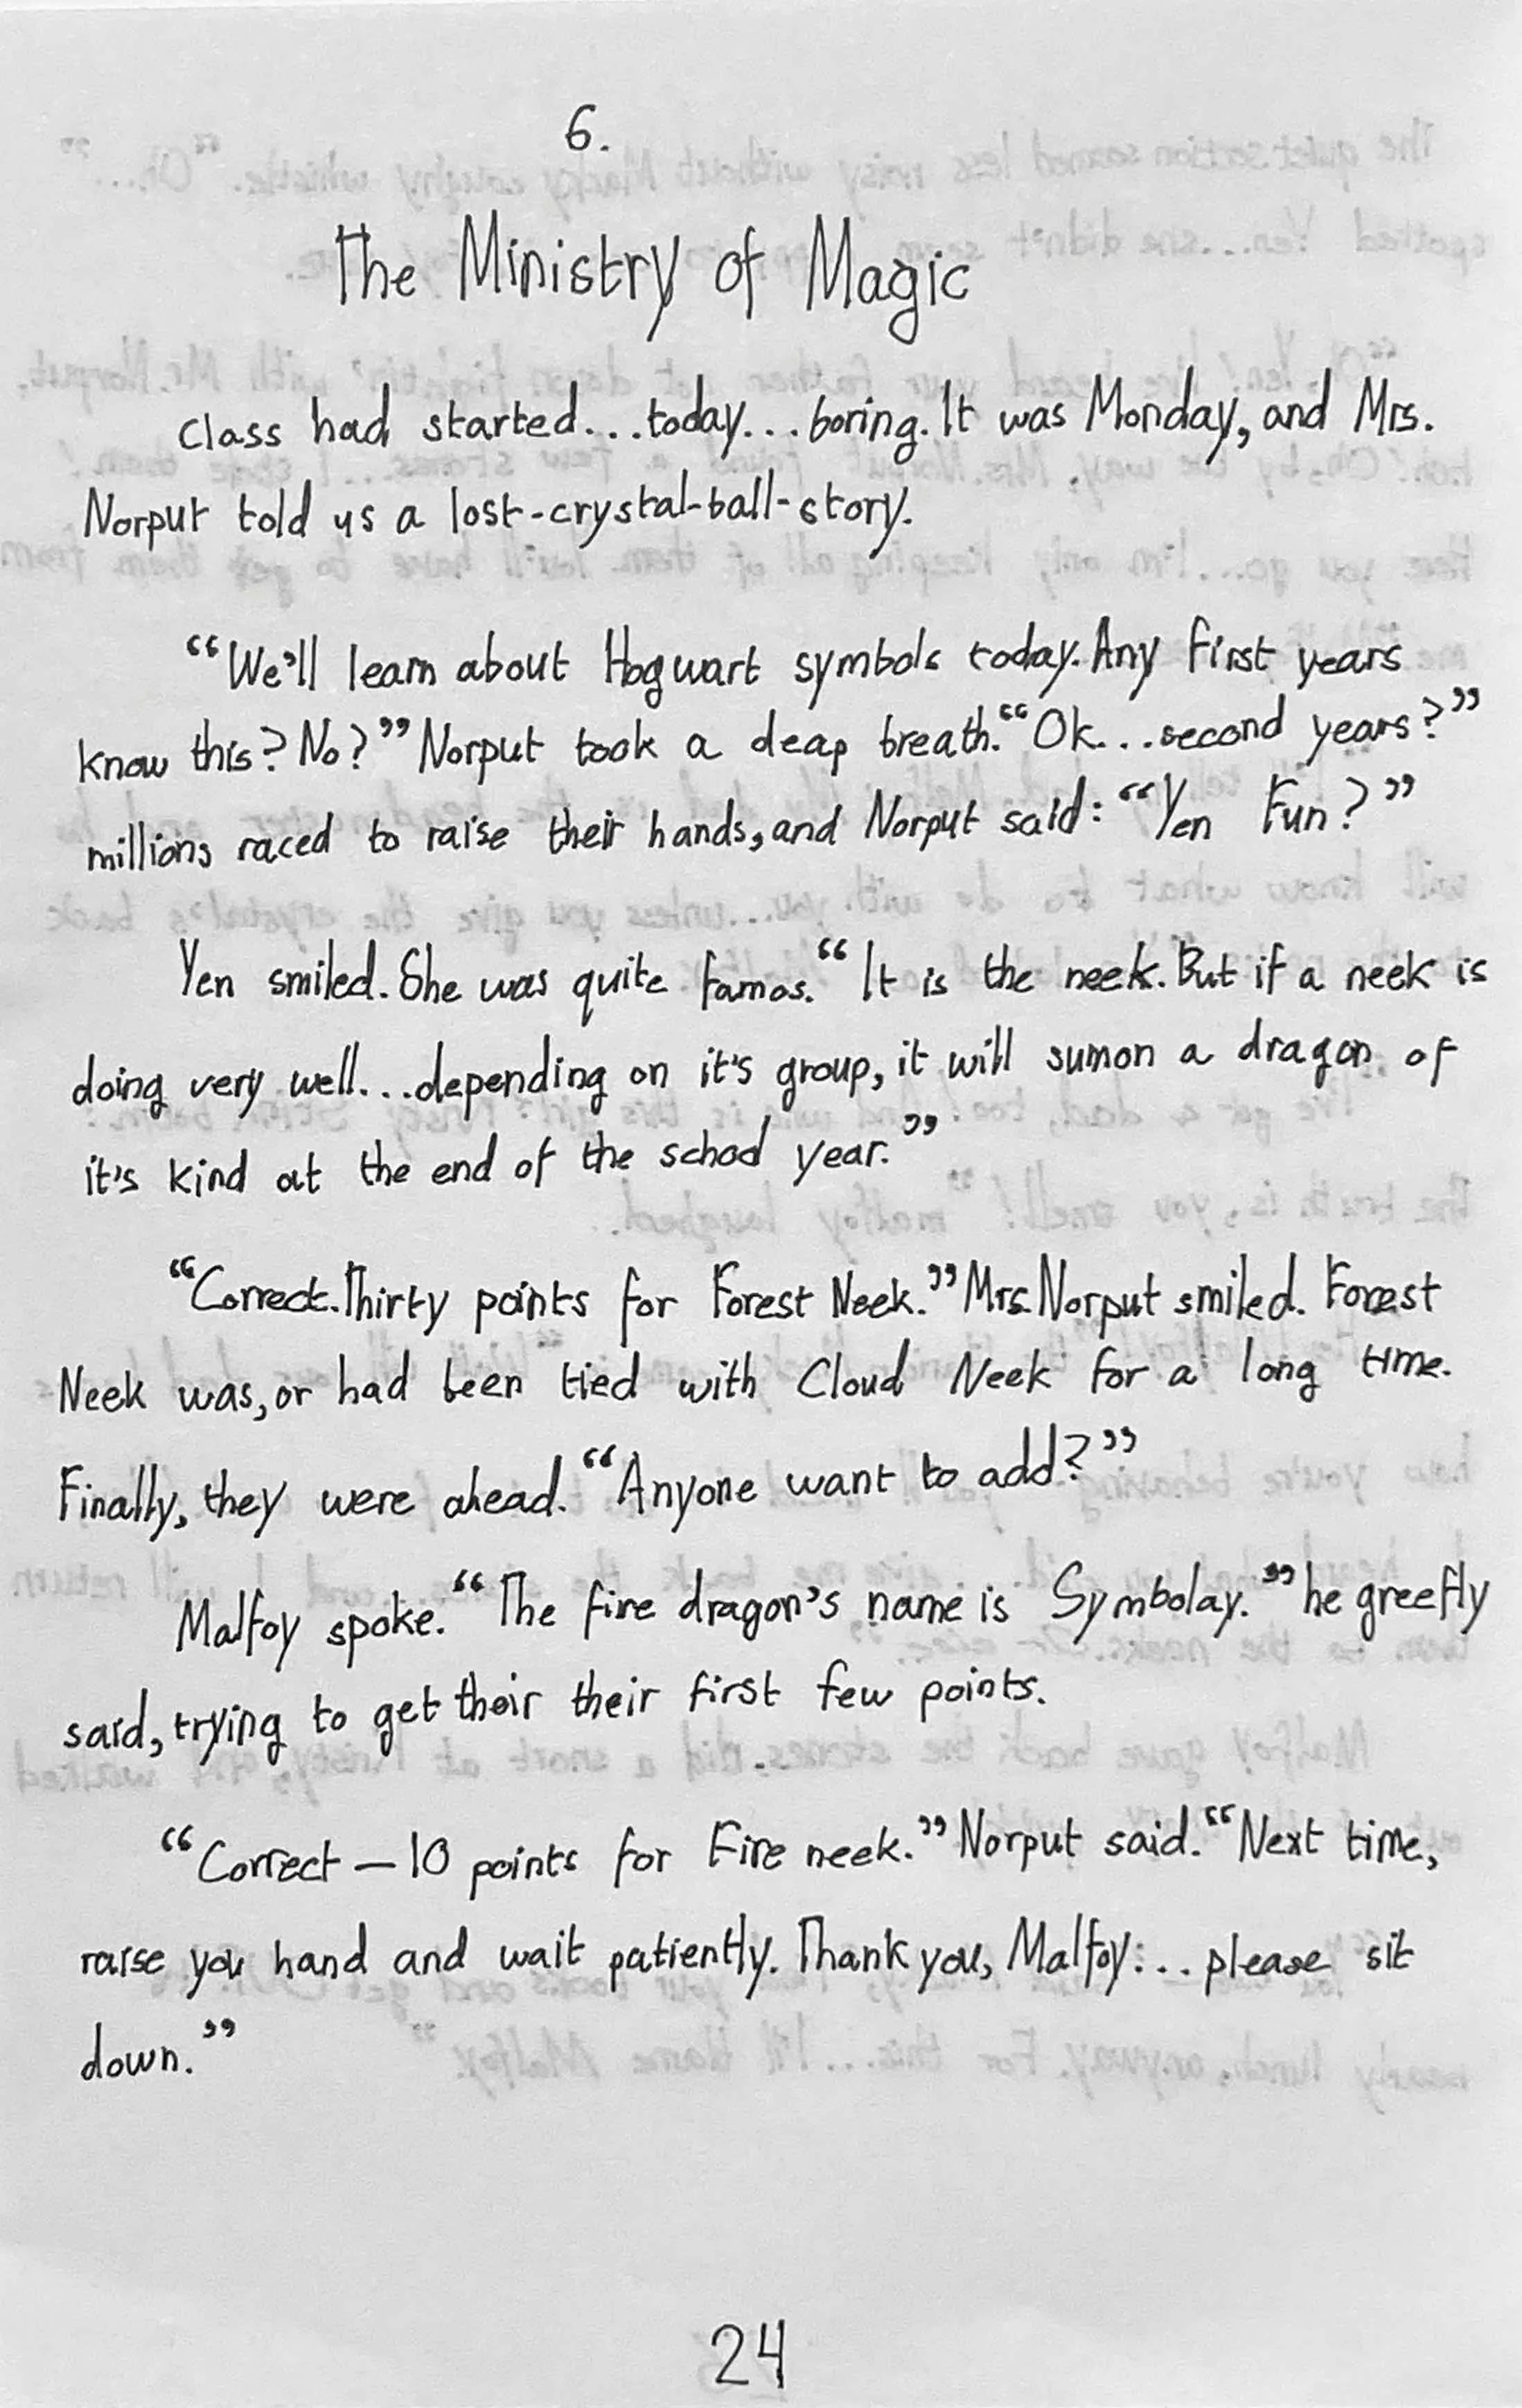 6.
The Ministry of Magic
Class had started...today...boring. It was Monday, and Mrs.
Norput told us a lost-crystal-ball-story.
“We'll learn about Hogwart symbols today. Any first years
know this? No?” Norput took a deap breath. “Ok...second years?”
millions raced to raise their hands, and Norput said: “Yen Fun?”
Yen smiled. She was quite famos. “It is the neek. But if a neek is
doing very well...depending on it's group, it will sumon a dragon of
it's kind at the end of the school year.”
“Correct. Thirty points for Forest Neek.” Mrs. Norput smiled. Forest
Neek was, or had been tied with Cloud Neek for a long time.
Finally, they were ahead. “Anyone want to add?”
Malfoy spoke. “The fire dragon's name is Symbolay.” he greefly
said, trying to get their their first few points.
“Correct – 10 points for Fire neek.” Norput said. “Next time,
raise you hand and wait patiently. Thank you, Malfoy:.. please sit
down.”
24